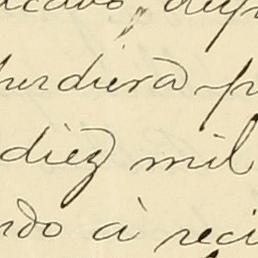 perdiera p
diez mil
ndo à reci